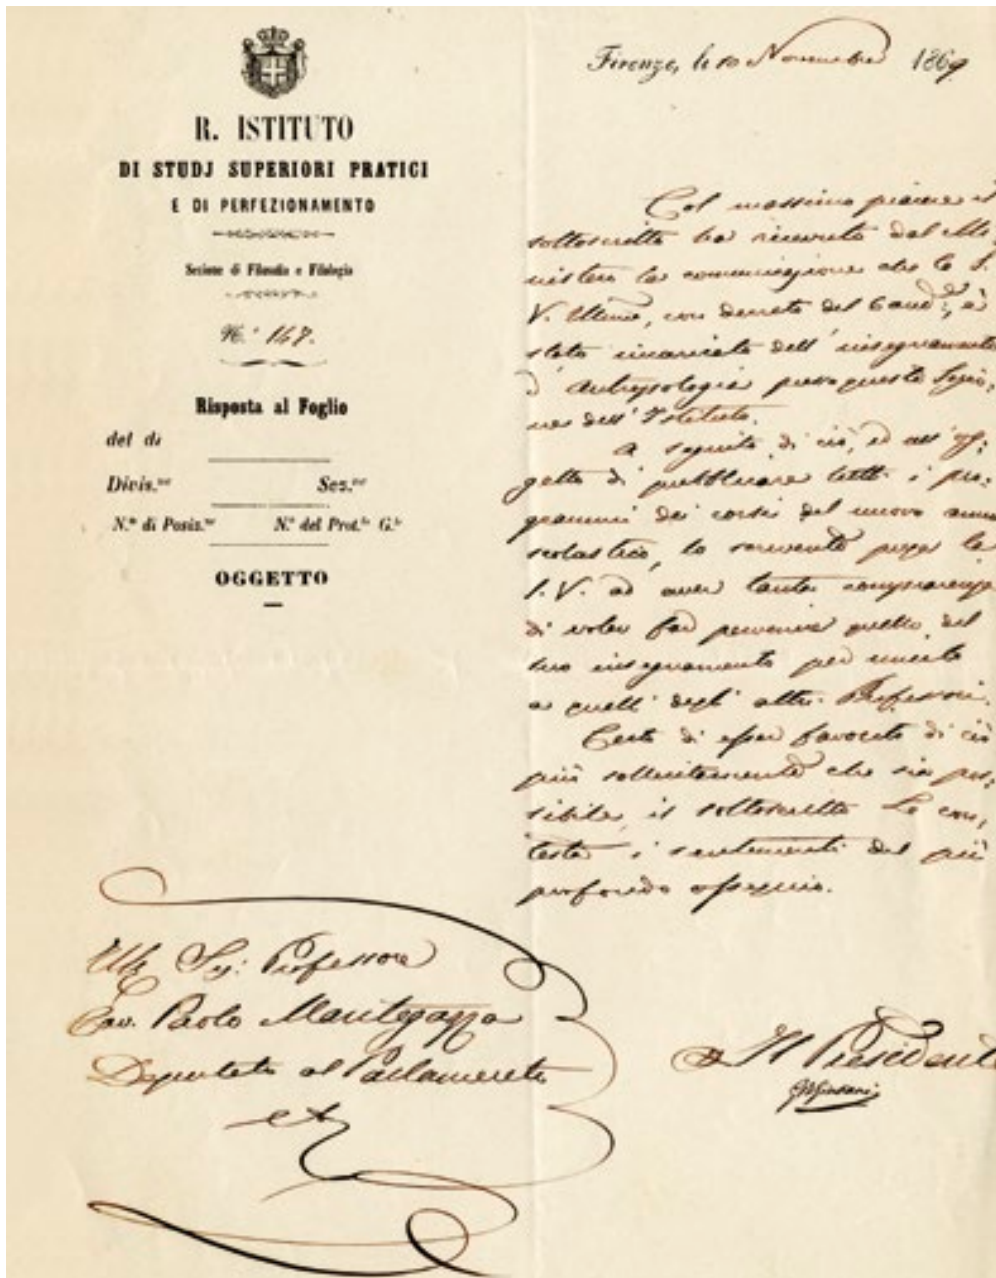 R. ISTITUTO
DI STUDJ SUPERIORI PRATICI
E DI PERFEZIONAMENTO
Sezione di Filosofia e Filologia
N.° 147.
Risposta al Foglio
del dì
Divis.ne Sez.ne
N.° di Posiz.ne N.° del Prot.lo G.le
OGGETTO
Firenze, li 10 Novembre 1869
Col massimo piacere il
sottoscritto ha ricevuto dal Mi-
nistero la comunicazione che la S.
V. Illma, con decreto del 6 and.te, è
stata incaricata dell'insegnamento
d'Antropologia presso questa Sezio-
ne dell'Istituto.
A seguito di ciò, ed all'og-
getto di pubblicare tutti i pro-
grammi dei corsi del nuovo anno
scolastico, lo scrivente prega la
S. V. ad aver tanta compiacenza
di voler far pervenire quello del
suo insegnamento per unirlo
a quelli degli altri Professori.
Certo di esser favorito di ciò
più sollecitamente che sia pos-
sibile, il sottoscritto Le con-
testa i sentimenti del più
profondo ossequio.
Il President
Ill. Sig. Professore
Cav. Paolo Mantegazza
Deputato al Parlamento